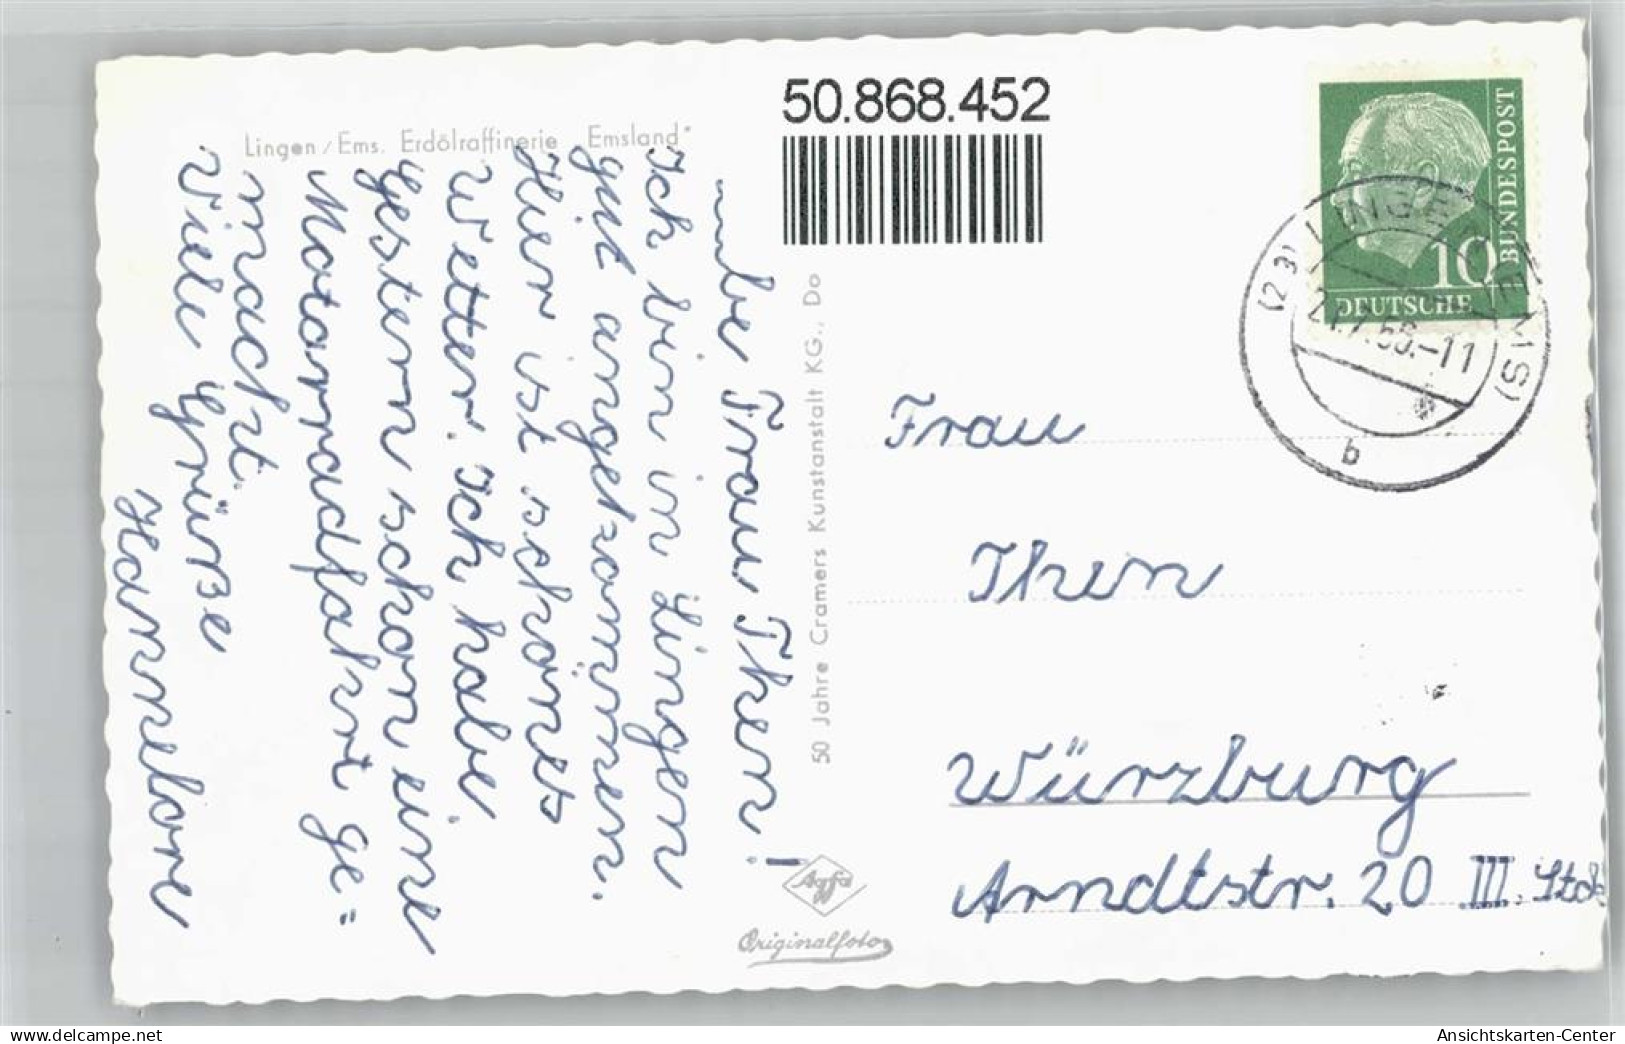 50.868.452
Lingen / Ems. Erdölraffinerie „Emsland"
BUNDESPOST
10
DEUTSCHE
(23) LINGEN (EMS)
-11
b
Frau Then!
Ich bin in Lingen
gut angekommen.
Hier ist schönes
Wetter. Ich habe
Gestern schon eine
Motorradfahrt ge=
macht.
Viele Grüße
Hannelore
50 Jahre Cramers Kunstanstalt KG., Do
Agfa
Originalfoto
Frau
Then
Würzburg
Arndtstr. 20 III. Stck
www.delcampe.net
Ansichtskarten-Center